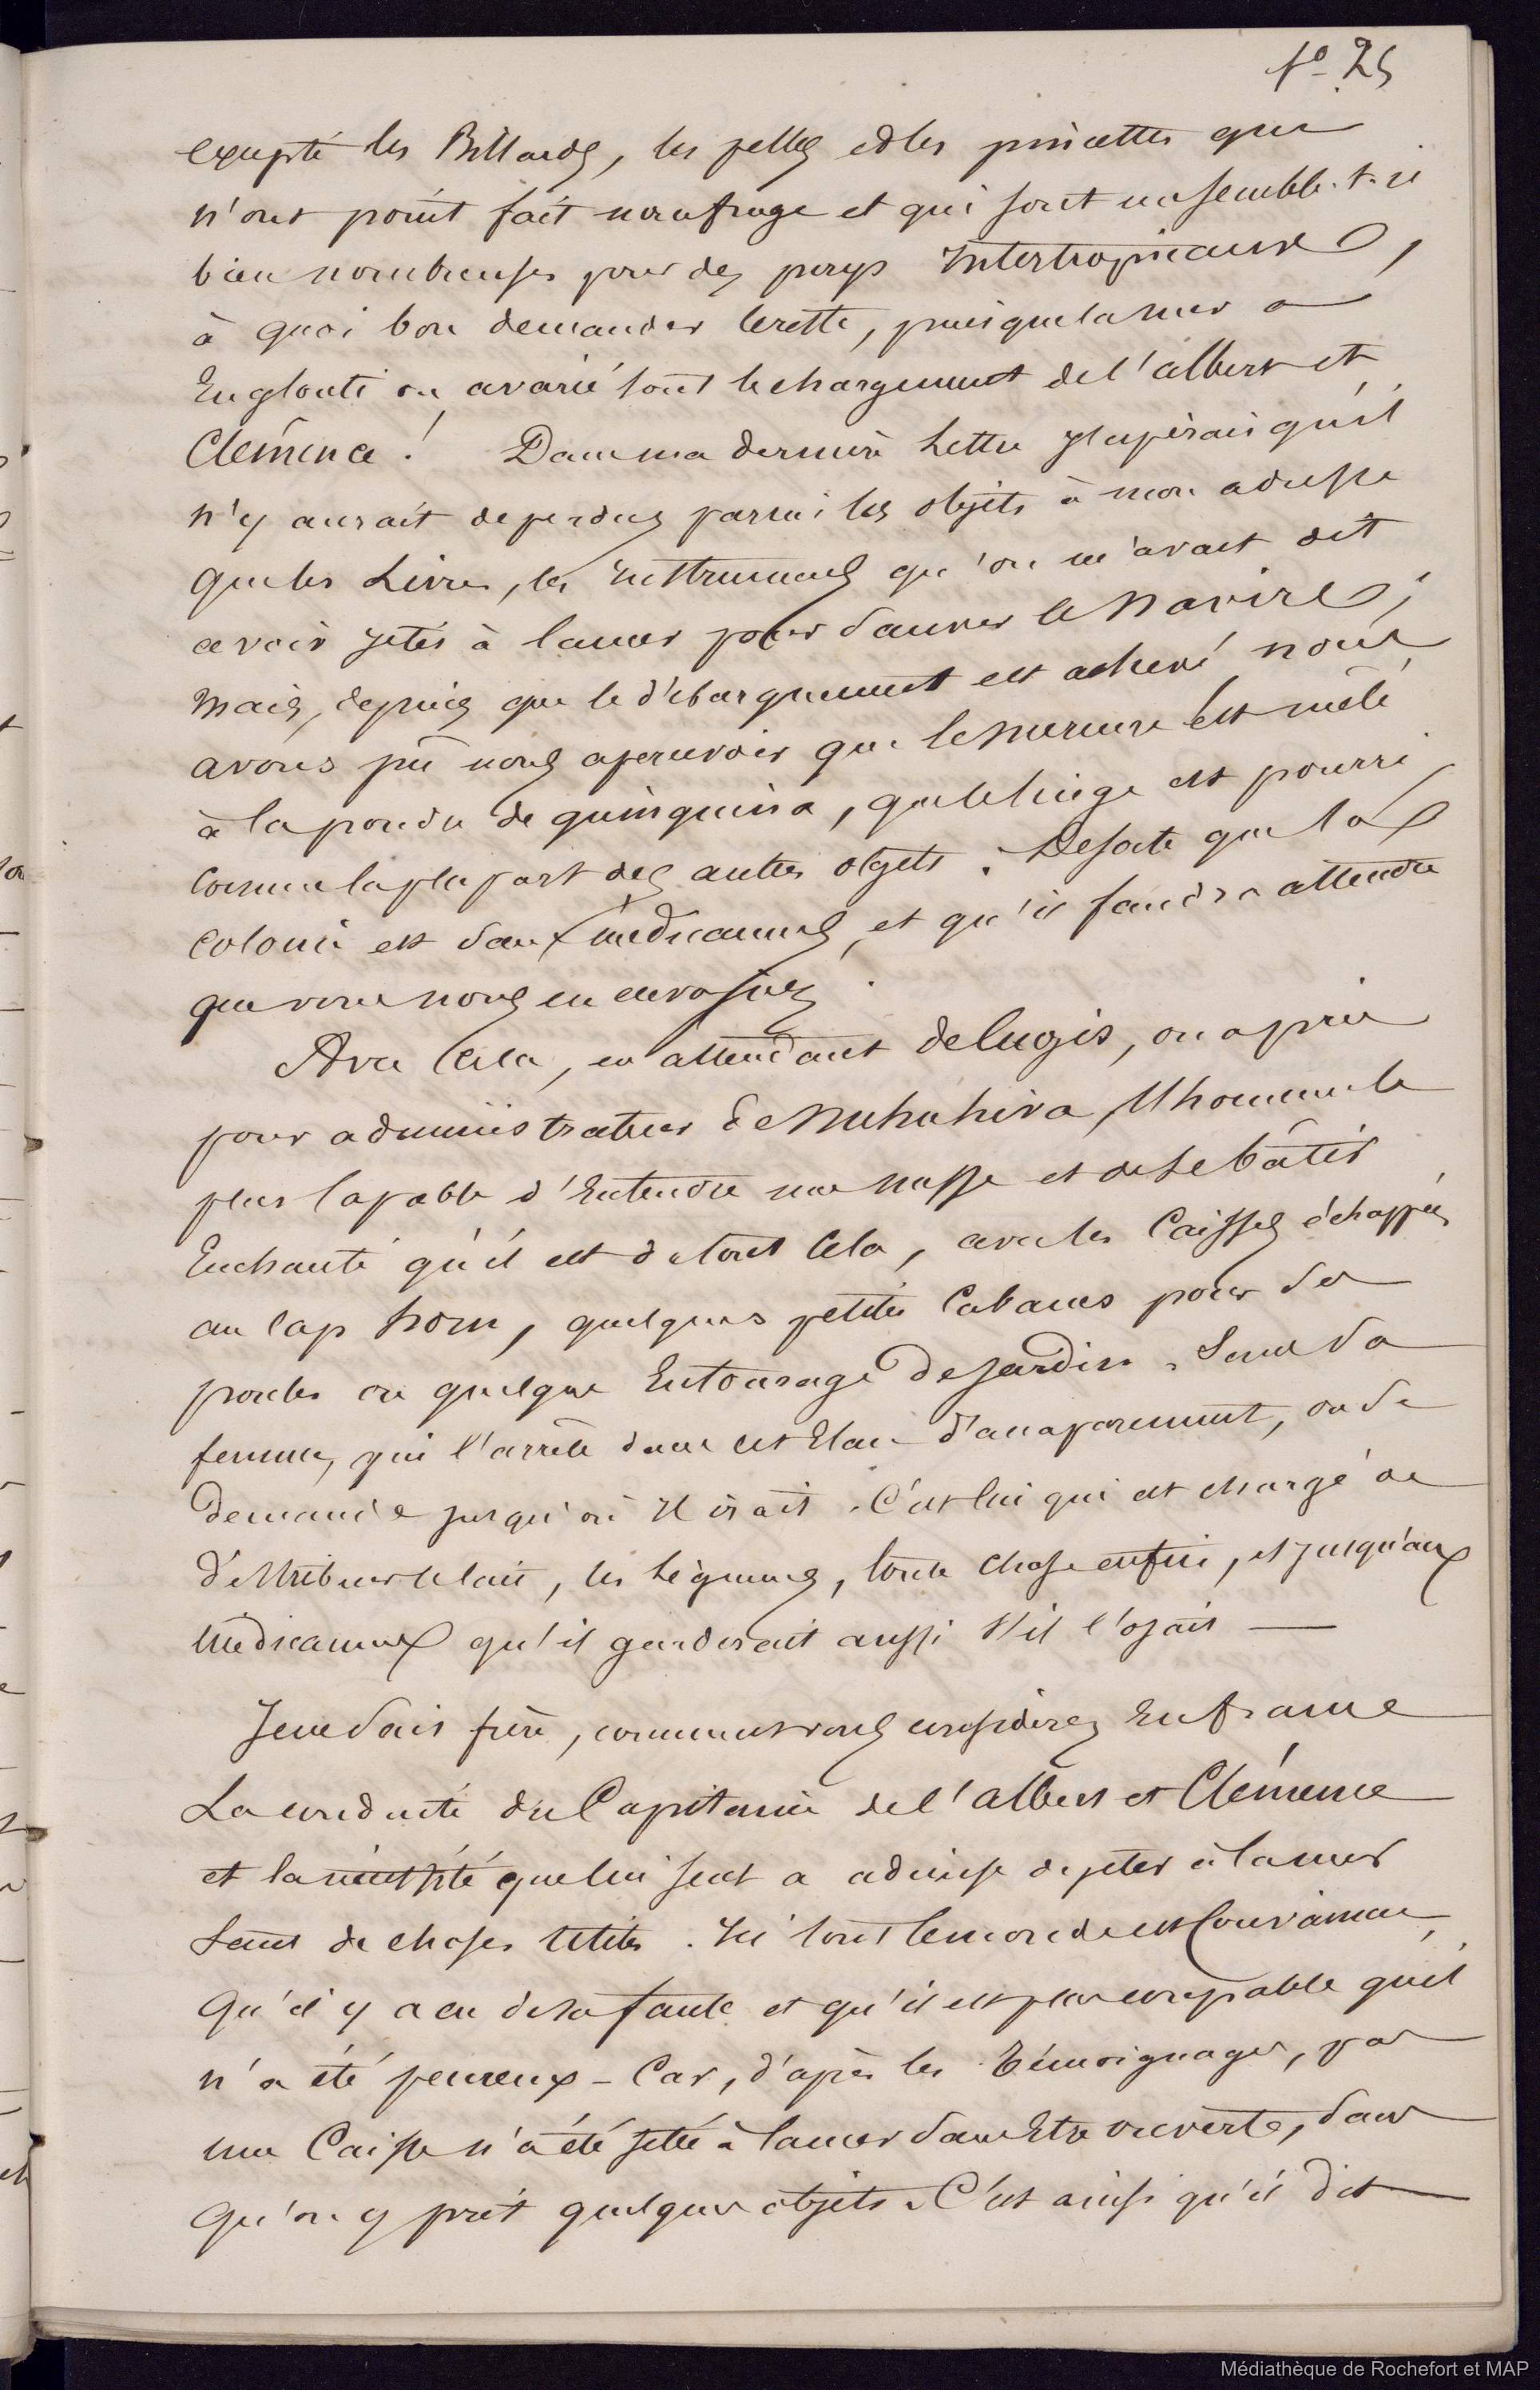 fo. 25
excepté les Billards, les pelles et les pincettes qui
n'ont point fait naufrage et qui sont ensemble. t. si
bien nombreuses pour des pays Intertropicaux,
à quoi bon demander le reste, puisque la mer a
Englouti ou avarié tout le chargement de l'albert et
Clémence ! Dans ma dernière Lettre j'espérais qu'il
n'y aurait de perdus parmi les objets à mon adresse
que les Livres, les Instruments qu'on m'avait dit
avoir jetés à la mer pour sauver le Navire ;
Mais, depuis que le débarquement est achevé, nous
avons pû nous apercevoir que le mercure est mêlé
à la poudre de quinquina, que le linge est pourri,
comme la plupart des autres objets. De sorte que la
colonie est sans médicaments, et qu'il faudra attendre
que vous nous en envoyiez.
Avec Cela, en attendant de Lugis, on a pris
pour administrateur de Nuhuhiva, l'homme le
plus Capable d'Entendre une messe et de se bâtir
Enchanté qu'il est de tout Cela, avec les Caisses échappées
au Cap horn, quelques petites Cabanes pour ses
poules ou quelque Entourage de Jardin. Sans sa
femme, qui l'arrête dans cet Elan d'accaparement, on se
demande jusqu'où Il irait. C'est lui qui est chargé de
distribuer le lait, les Légumes, toute chose enfin, et jusqu'aux
Médicaments qu'il garderait aussi S'il l'osait —
Je ne sais frère, comment vous considérez En france
La conduite du Capitaine de l'albert et Clémence
et la nécessité que lui seul a admise de jeter à la mer
tant de choses Utiles. Ici tout le monde est Convaincu,
Qu'il y a eu de sa faute et qu'il est plus coupable qu'il
n'a été peureux - Car, d'après les Témoignages, pas
une Caisse n'a été jetée à la mer sans Etre ouverte, sans
Qu'on y prit quelques objets. C'est ainsi qu'il dit
Médiathèque de Rochefort et MAP